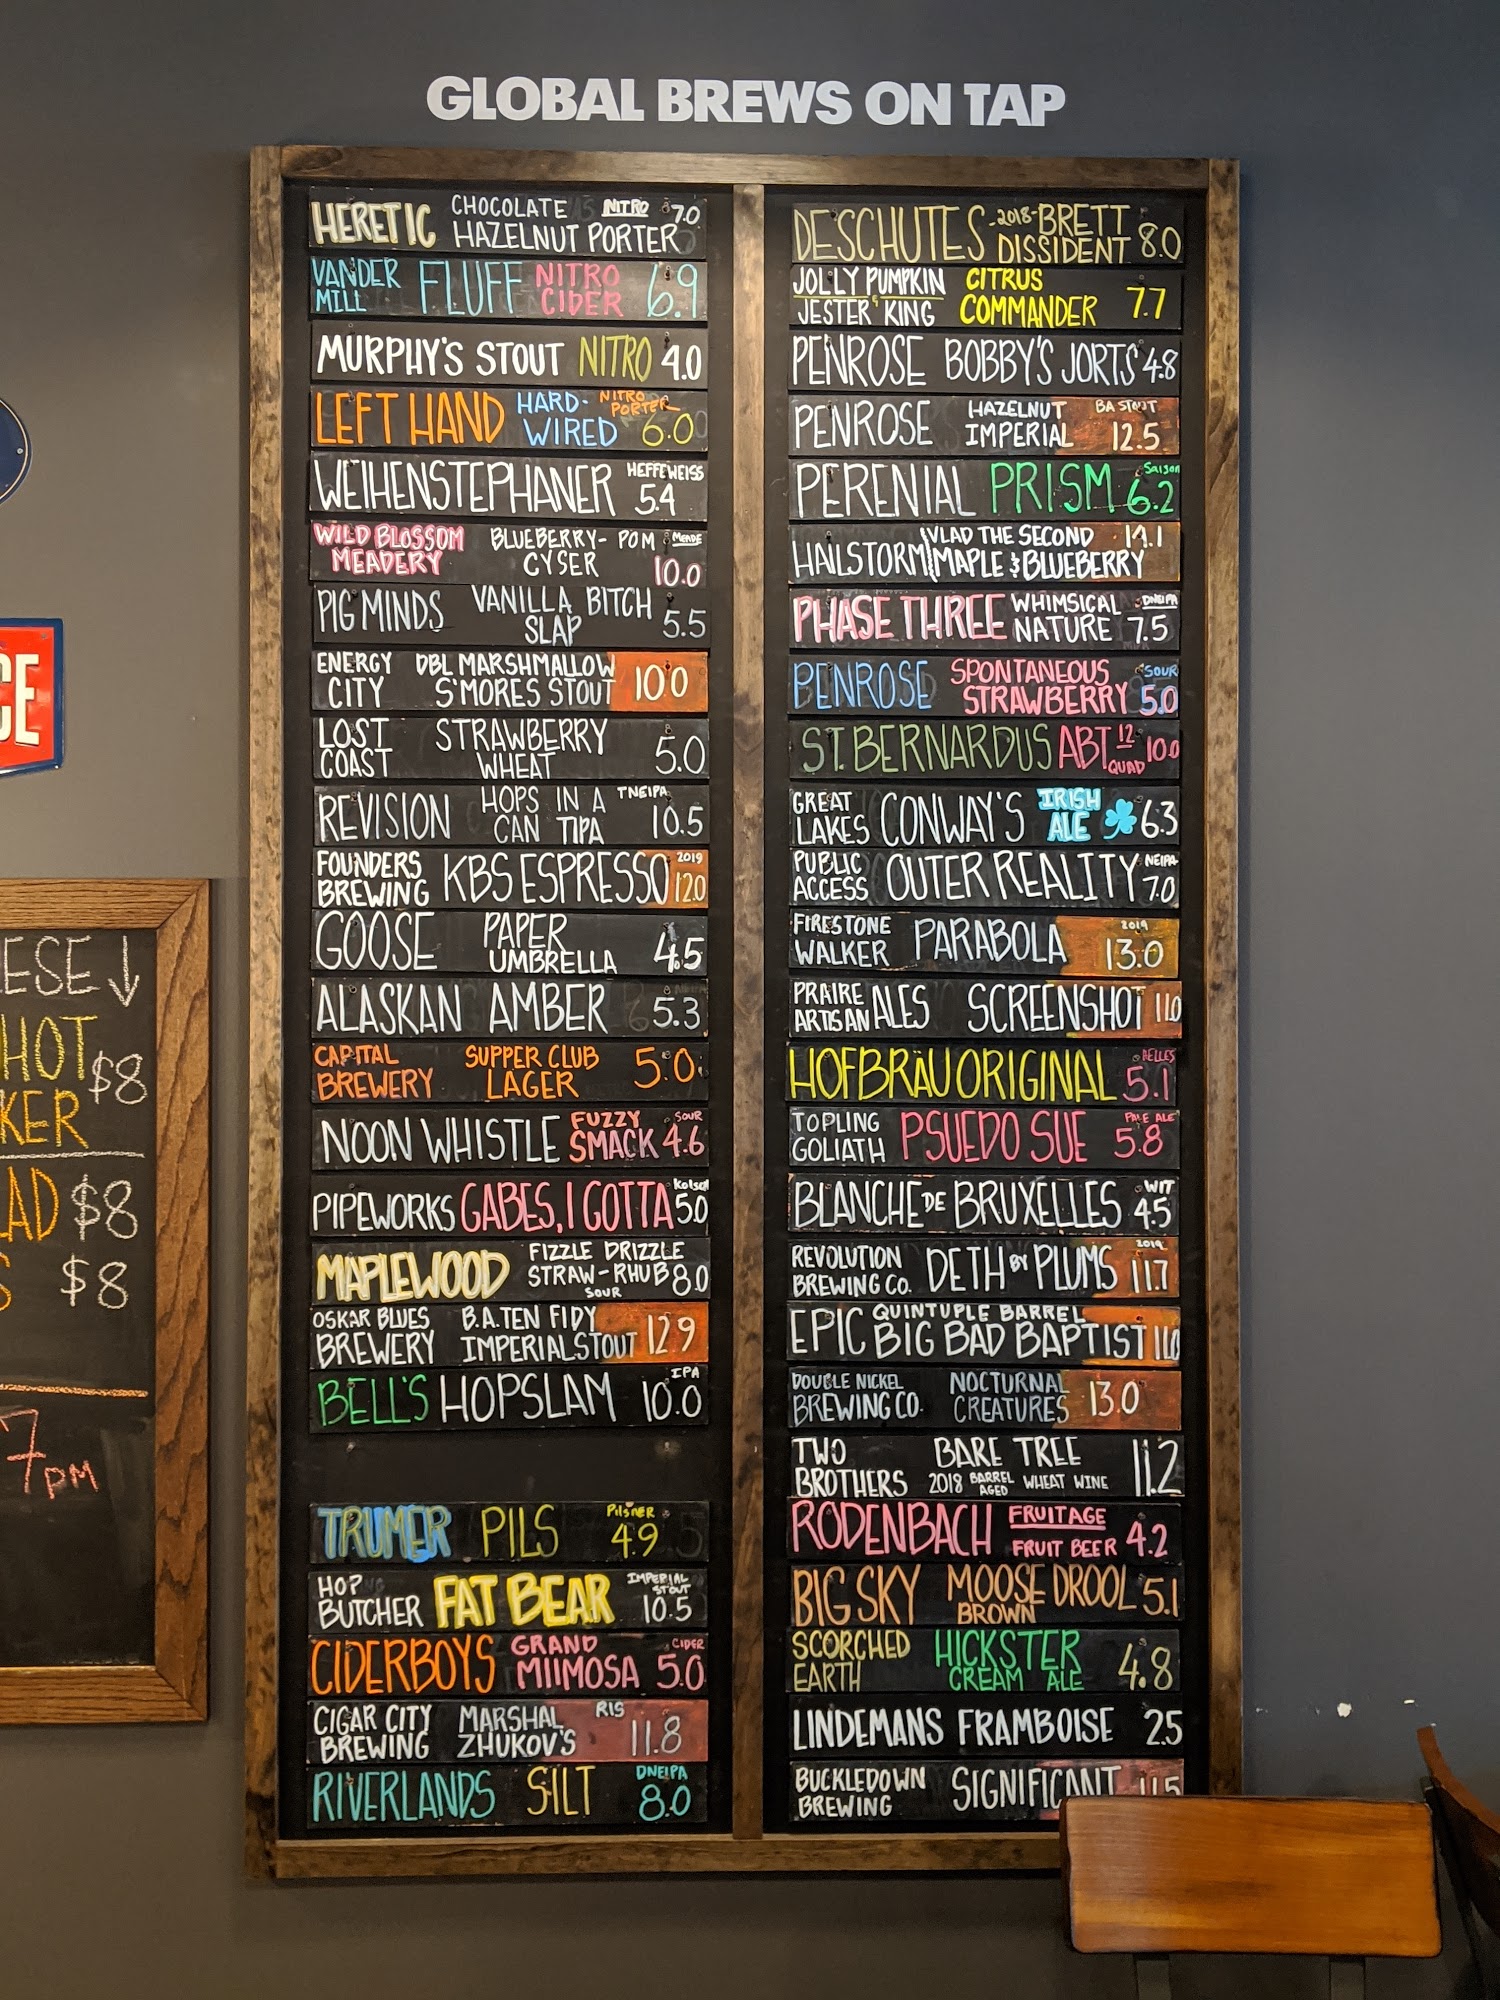 GLOBAL BREWS ON TAP
HERETIC CHOCOLATE NITRO 7.0
HAZELNUT PORTER
VANDER MILL FLUFF NITRO CIDER 6.9
MURPHY'S STOUT NITRO 4.0
LEFT HAND HARD-WIRED NITRO PORTER 6.0
WEIHENSTEPHANER HEFFEWEISS 5.4
WILD BLOSSOM MEADERY BLUEBERRY-POM CYSER MEADE 10.0
PIG MINDS VANILLA BITCH SLAP 5.5
ENERGY CITY DBL MARSHMALLOW S'MORES STOUT 10.0
LOST COAST STRAWBERRY WHEAT 5.0
REVISION HOPS IN A CAN TIPA TNEIPA 10.5
FOUNDERS BREWING KBS ESPRESSO 2019 12.0
GOOSE PAPER UMBRELLA 4.5
ALASKAN AMBER 5.3
CAPITAL BREWERY SUPPER CLUB LAGER 5.0
NOON WHISTLE FUZZY SMACK SOUR 4.6
PIPEWORKS GABES, I GOTTA Kolsch 5.0
MAPLEWOOD FIZZLE DRIZZLE STRAW-RHUB SOUR 8.0
OSKAR BLUES BREWERY B.A. TEN FIDY IMPERIAL STOUT 12.9
BELL'S HOPSLAM IPA 10.0
TRUMER PILS Pilsner 4.9
HOP BUTCHER FAT BEAR IMPERIAL STOUT 10.5
CIDERBOYS GRAND MIIMOSA CIDER 5.0
CIGAR CITY BREWING MARSHAL ZHUKOV'S RIS 11.8
RIVERLANDS SILT DNEIPA 8.0
DESCHUTES -2018- BRETT DISSIDENT 8.0
JOLLY PUMPKIN & JESTER KING CITRUS COMMANDER 7.7
PENROSE BOBBY'S JORTS 4.8
PENROSE HAZELNUT IMPERIAL BA STOUT 12.5
PERENIAL PRISM Saison 6.2
HAILSTORM VLAD THE SECOND MAPLE & BLUEBERRY
PHASE THREE WHIMSICAL NATURE DNEIPA 7.5
PENROSE SPONTANEOUS STRAWBERRY SOUR 5.0
ST. BERNARDUS ABT 12 QUAD 10.0
GREAT LAKES CONWAY'S IRISH ALE 6.3
PUBLIC ACCESS OUTER REALITY NEIPA 7.0
FIRESTONE WALKER PARABOLA 2019 13.0
PRAIRE ARTISAN ALES SCREENSHOT 11.0
HOFBRÄU ORIGINAL HELLES 5.1
TOPLING GOLIATH PSUEDO SUE PALE ALE 5.8
BLANCHE DE BRUXELLES WIT 4.5
REVOLUTION BREWING CO. DETH BY PLUMS 2019 11.7
EPIC QUINTUPLE BARREL BIG BAD BAPTIST 11.0
DOUBLE NICKEL BREWING CO. NOCTURNAL CREATURES 13.0
TWO BROTHERS BARE TREE 2018 BARREL AGED WHEAT WINE 11.2
RODENBACH FRUITAGE FRUIT BEER 4.2
BIG SKY MOOSE DROOL BROWN 5.1
SCORCHED EARTH HICKSTER CREAM ALE 4.8
LINDEMANS FRAMBOISE 2.5
BUCKLEDOWN BREWING SIGNIFICANT 11.5
CE
ESE ↓
HOT
KER $8
AD $8
S $8
7PM